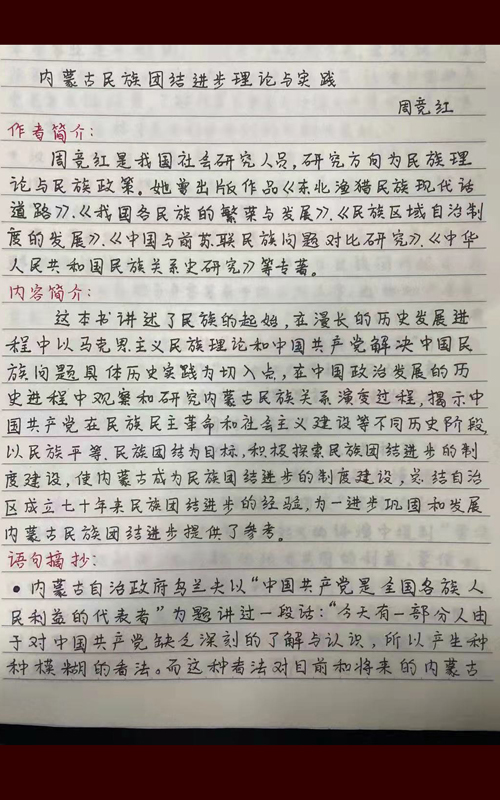 内蒙古民族团结进步理论与实践
周竞红
作者简介：
周竞红是我国社会研究人员，研究方向为民族理
论与民族政策。她曾出版作品《东北渔猎民族现代话
道路》、《我国各民族的繁荣与发展》、《民族区域自治制
度的发展》、《中国与前苏联民族问题对比研究》、《中华
人民共和国民族关系史研究》等专著。
内容简介：
这本书讲述了民族的起始，在漫长的历史发展进
程中以马克思主义民族理论和中国共产党解决中国民
族问题具体历史实践为切入点，在中国政治发展的历
史进程中观察和研究内蒙古民族关系演变过程，揭示中
国共产党在民族民主革命和社会主义建设等不同历史阶段，
以民族平等、民族团结为目标，积极探索民族团结进步的制
度建设，使内蒙古成为民族团结进步的制度建设，总结自治
区成立七十年来民族团结进步的经验，为一进步巩固和发展
内蒙古民族团结进步提供了参考。
语句摘抄：
• 内蒙古自治政府乌兰夫以“中国共产党是全国各族人
民利益的代表者”为题讲过一段话：“今天有一部分人由
于对中国共产党缺乏深刻的了解与认识，所以产生种
种模糊的看法。而这种看法对目前和将来的内蒙古